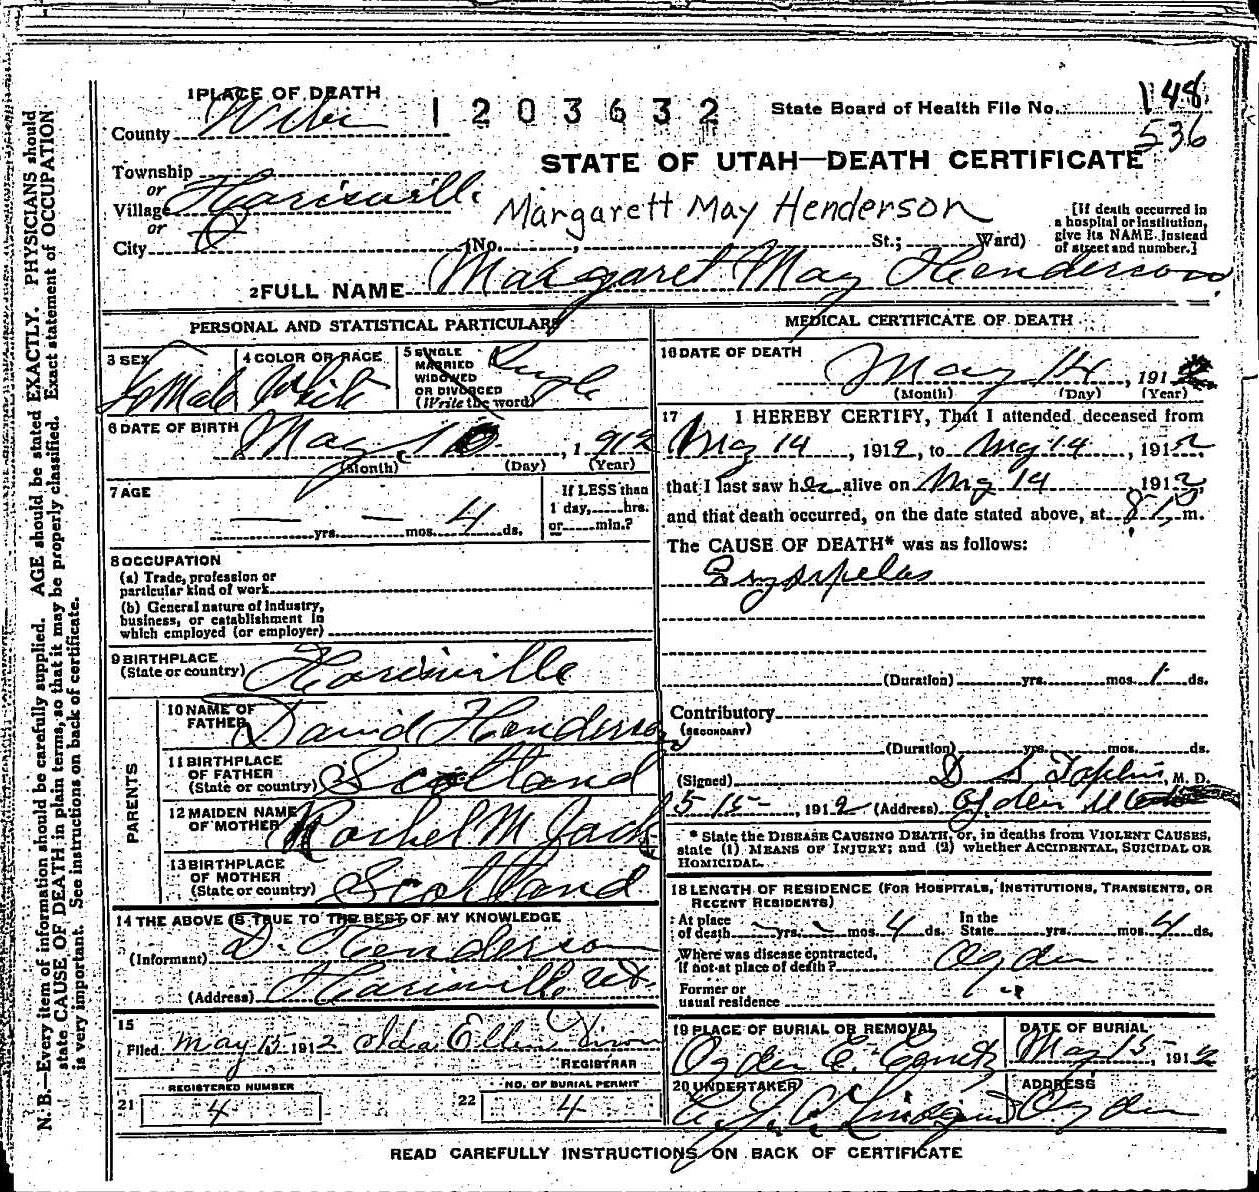 1 PLACE OF DEATH
1203632
State Board of Health File No. 148
536
County Weber
STATE OF UTAH—DEATH CERTIFICATE
Township
or
Village Harisville
or
City
Margarett May Henderson
(No. St.; Ward)
[If death occurred in
a hospital or institution,
give its NAME instead
of street and number.]
2 FULL NAME Margaret May Henderson
PERSONAL AND STATISTICAL PARTICULARS
3 SEX
Female
4 COLOR OR RACE
White
5 SINGLE
MARRIED
WIDOWED
OR DIVORCED
(Write the word)
Single
6 DATE OF BIRTH May 10, 1912
(Month) (Day) (Year)
7 AGE
— yrs. — mos. 4 ds.
If LESS than
1 day, hrs.
or min.?
8 OCCUPATION
(a) Trade, profession or
particular kind of work
(b) General nature of industry,
business, or establishment in
which employed (or employer)
9 BIRTHPLACE
(State or country) Harisville
PARENTS
10 NAME OF
FATHER David Henderson
11 BIRTHPLACE
OF FATHER
(State or country) Scotland
12 MAIDEN NAME
OF MOTHER Rachel M Jack
13 BIRTHPLACE
OF MOTHER
(State or country) Scotland
14 THE ABOVE IS TRUE TO THE BEST OF MY KNOWLEDGE
(Informant) D. Henderson
(Address) Harisville Ut.
15
Filed May 15 1912 Ida Ellen
REGISTRAR
REGISTERED NUMBER
21 4
NO. OF BURIAL PERMIT
22 4
MEDICAL CERTIFICATE OF DEATH
16 DATE OF DEATH
May 14, 1912
(Month) (Day) (Year)
17 I HEREBY CERTIFY, That I attended deceased from
May 14, 1912, to May 14, 1912
that I last saw her alive on May 14 1912
and that death occurred, on the date stated above, at 8:15 m.
The CAUSE OF DEATH* was as follows:
Erysipelas
(Duration) yrs. mos. 1 ds.
Contributory
(SECONDARY)
(Duration) yrs. mos. ds.
(Signed) D S Taplin, M. D.
5-15-, 1912 (Address) Ogden Utah
* State the DISEASE CAUSING DEATH, or, in deaths from VIOLENT CAUSES,
state (1) MEANS OF INJURY; and (2) whether ACCIDENTAL, SUICIDAL OR
HOMICIDAL.
18 LENGTH OF RESIDENCE (FOR HOSPITALS, INSTITUTIONS, TRANSIENTS, OR
RECENT RESIDENTS)
At place
of death — yrs. — mos. 4 ds.
In the
State yrs. mos. 4 ds.
Where was disease contracted,
If not at place of death? Ogden
Former or
usual residence
19 PLACE OF BURIAL OR REMOVAL
Ogden
DATE OF BURIAL
May 15, 1912
20 UNDERTAKER
ADDRESS
Ogden
READ CAREFULLY INSTRUCTIONS ON BACK OF CERTIFICATE
N. B.—Every item of information should be carefully supplied. AGE should be stated EXACTLY. PHYSICIANS should
state CAUSE OF DEATH in plain terms, so that it may be properly classified. Exact statement of OCCUPATION
is very important. See instructions on back of certificate.